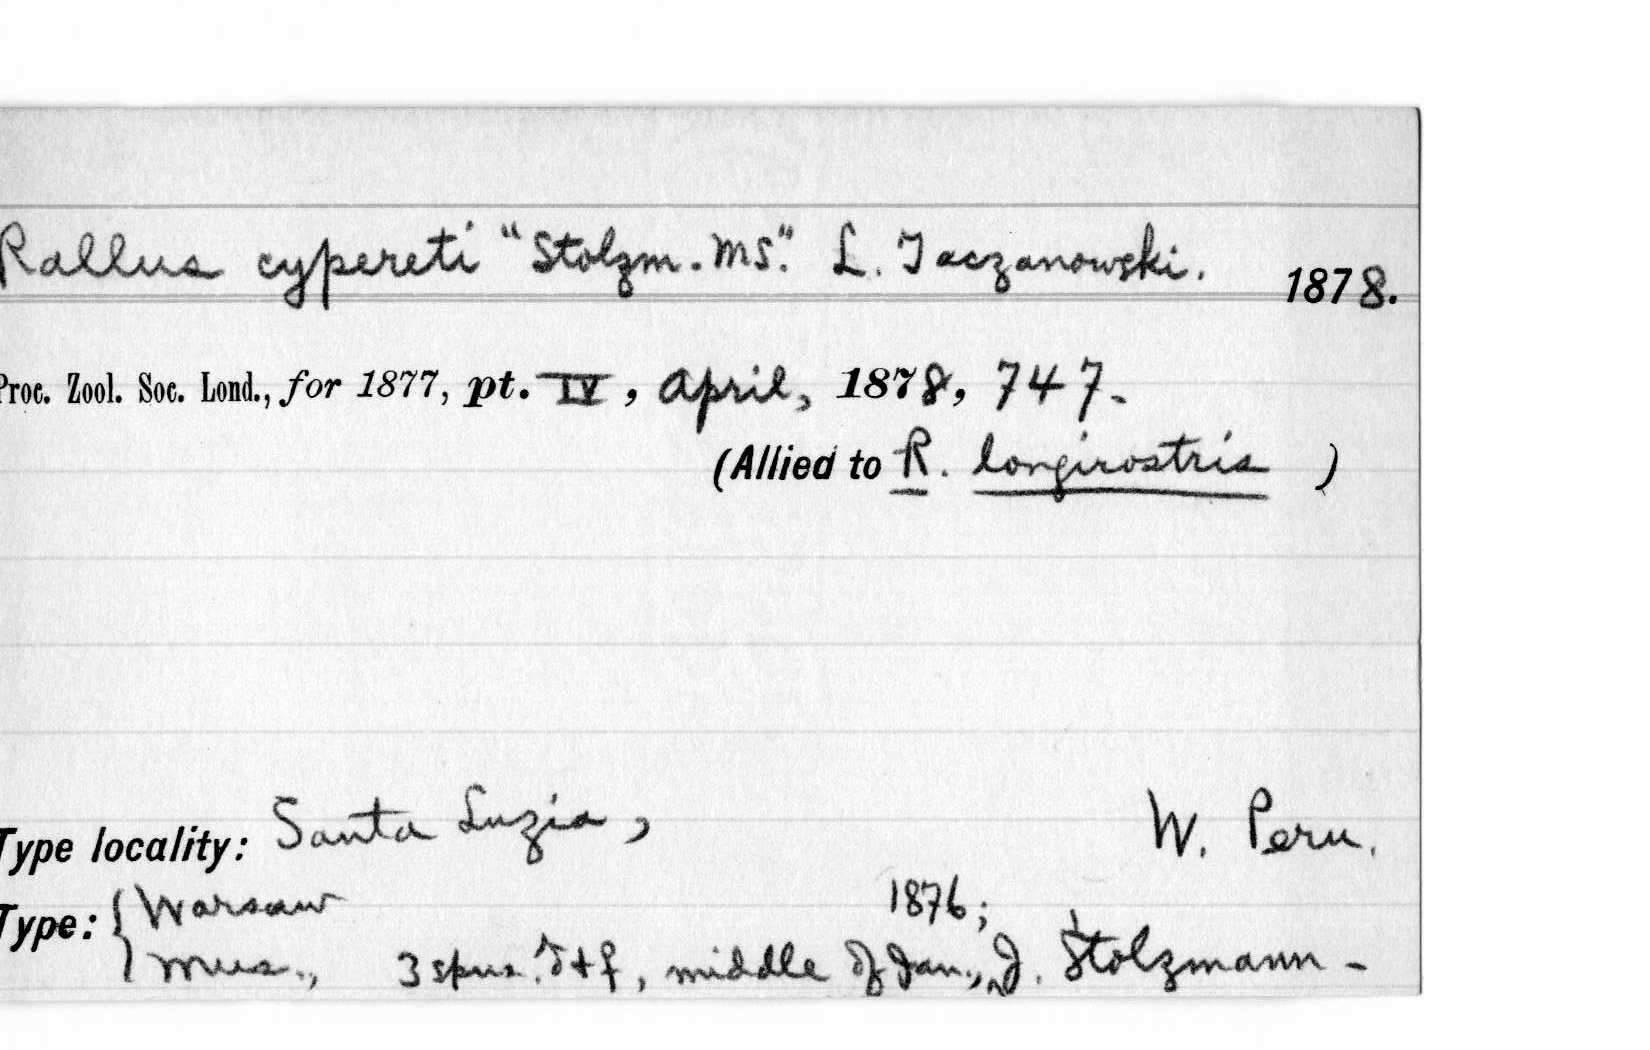 Rallus cypereti "Stolzm. MS." L. Taczanowski. 1878.
Proc. Zool. Soc. Lond., for 1877, pt. IV, April, 1878, 747.
(Allied to R. longirostris )
Type locality: Santa Luzia, W. Peru.
Type: { Warsaw 1876;
Mus., 3 spns. ♂+♀, middle of Jan., J. Stolzmann -